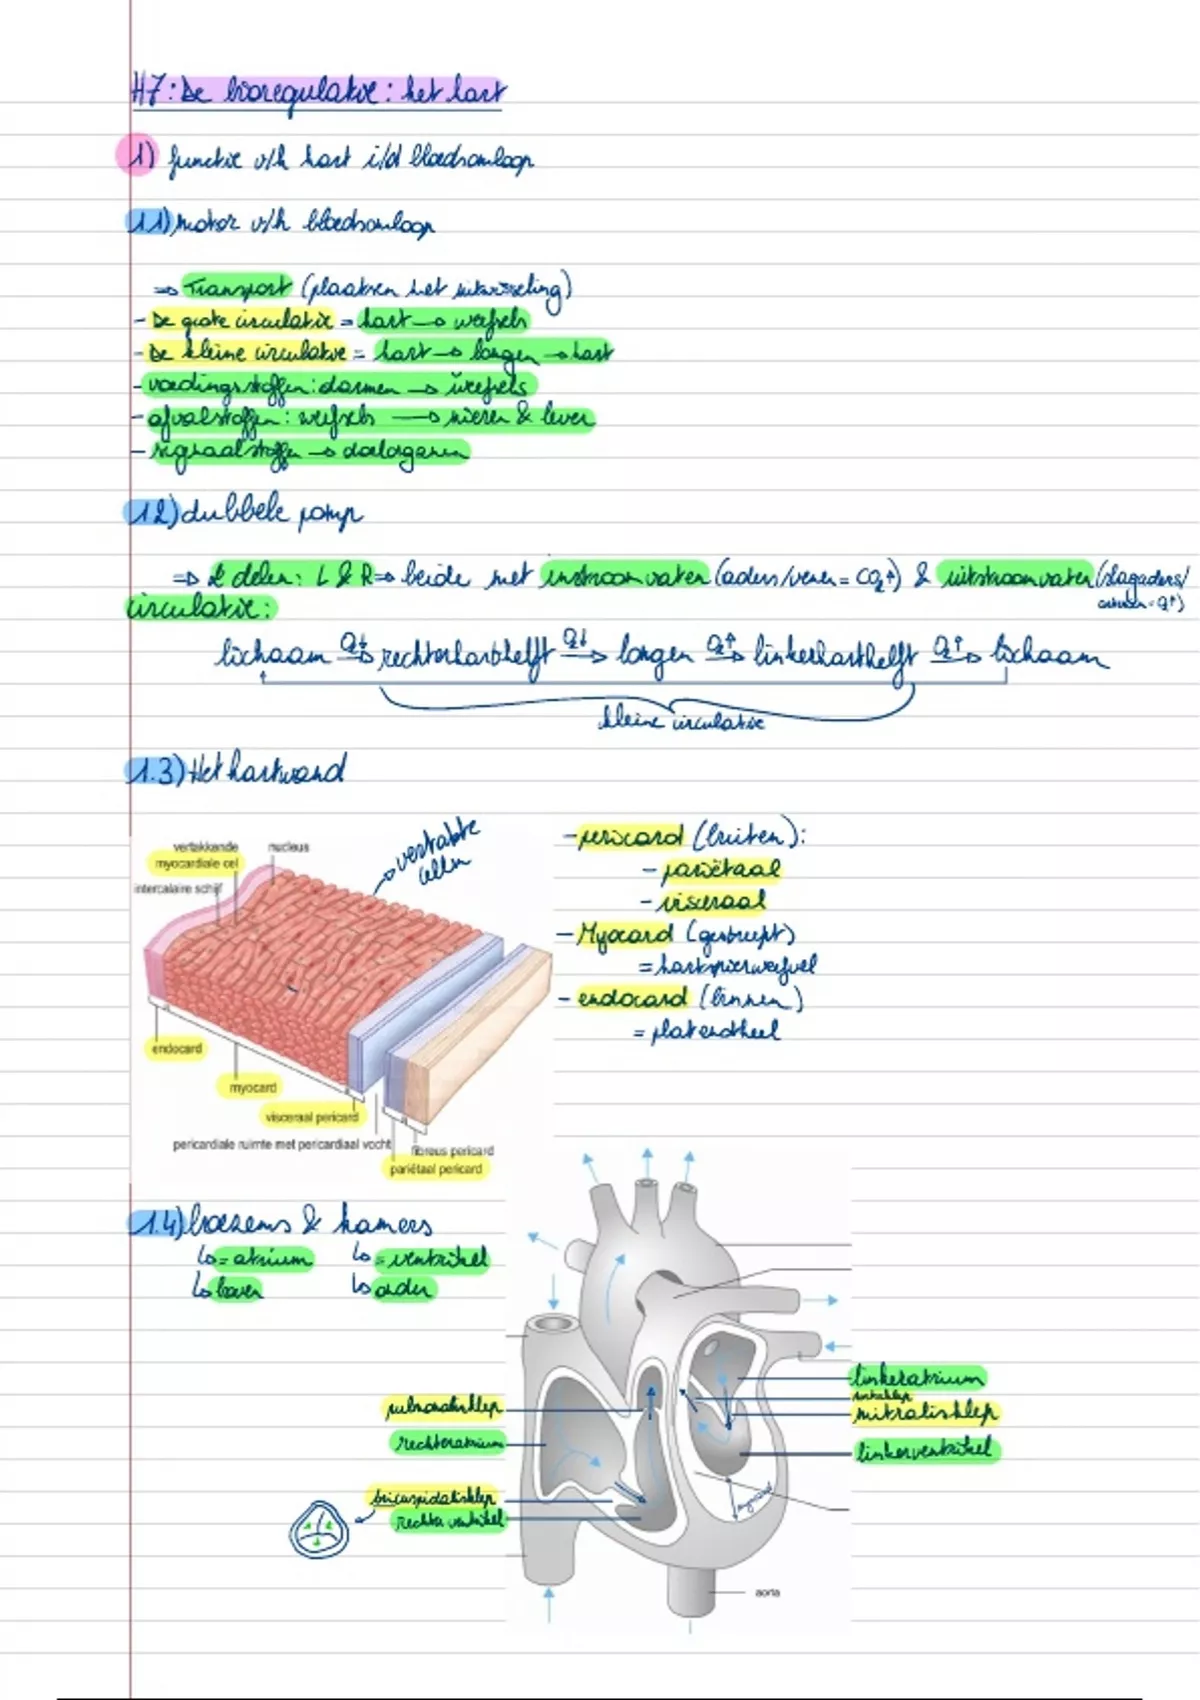 H7: De bioregulatie: het hart
1) functie v/h hart i/d bloedsomloop
1.1) motor v/h bloedsomloop
⇒ Transport (plaatsen met uitwisseling)
- De grote circulatie = hart → weefsels
- De kleine circulatie = hart → longen → hart
- voedingsstoffen: darmen → weefsels
- afvalstoffen: weefsels → nieren & lever
- signaalstoffen → doelorganen
1.2) dubbele pomp
⇒ 2 delen: L & R ⇒ beide met instroomvaten (aders/venen = CO₂↑) & uitstroomvaten (slagaders/
arteriën = O₂↑)
circulatie:
lichaam O₂↓→ rechterharthelft O₂↓→ longen O₂↑→ linkerharthelft O₂↑→ lichaam
kleine circulatie
1.3) Het hartwand
vertakkende
myocardiale cel
nucleus
intercalaire schijf
→ vertakte
cellen
endocard
myocard
visceraal pericard
pericardiale ruimte met pericardiaal vocht
fibreus pericard
pariëtaal pericard
- pericard (buiten):
- pariëtaal
- visceraal
- Myocard (gestreept)
= hartspierweefsel
- endocard (binnen)
= plat endotheel
1.4) boezems & kamers
↳ = atrium ↳ = ventrikel
↳ boven ↳ onder
pulmonalisklep
rechteratrium
tricuspidalisklep
rechter ventrikel
linkeratrium
mitralisklep
linkerventrikel
myocard
aorta